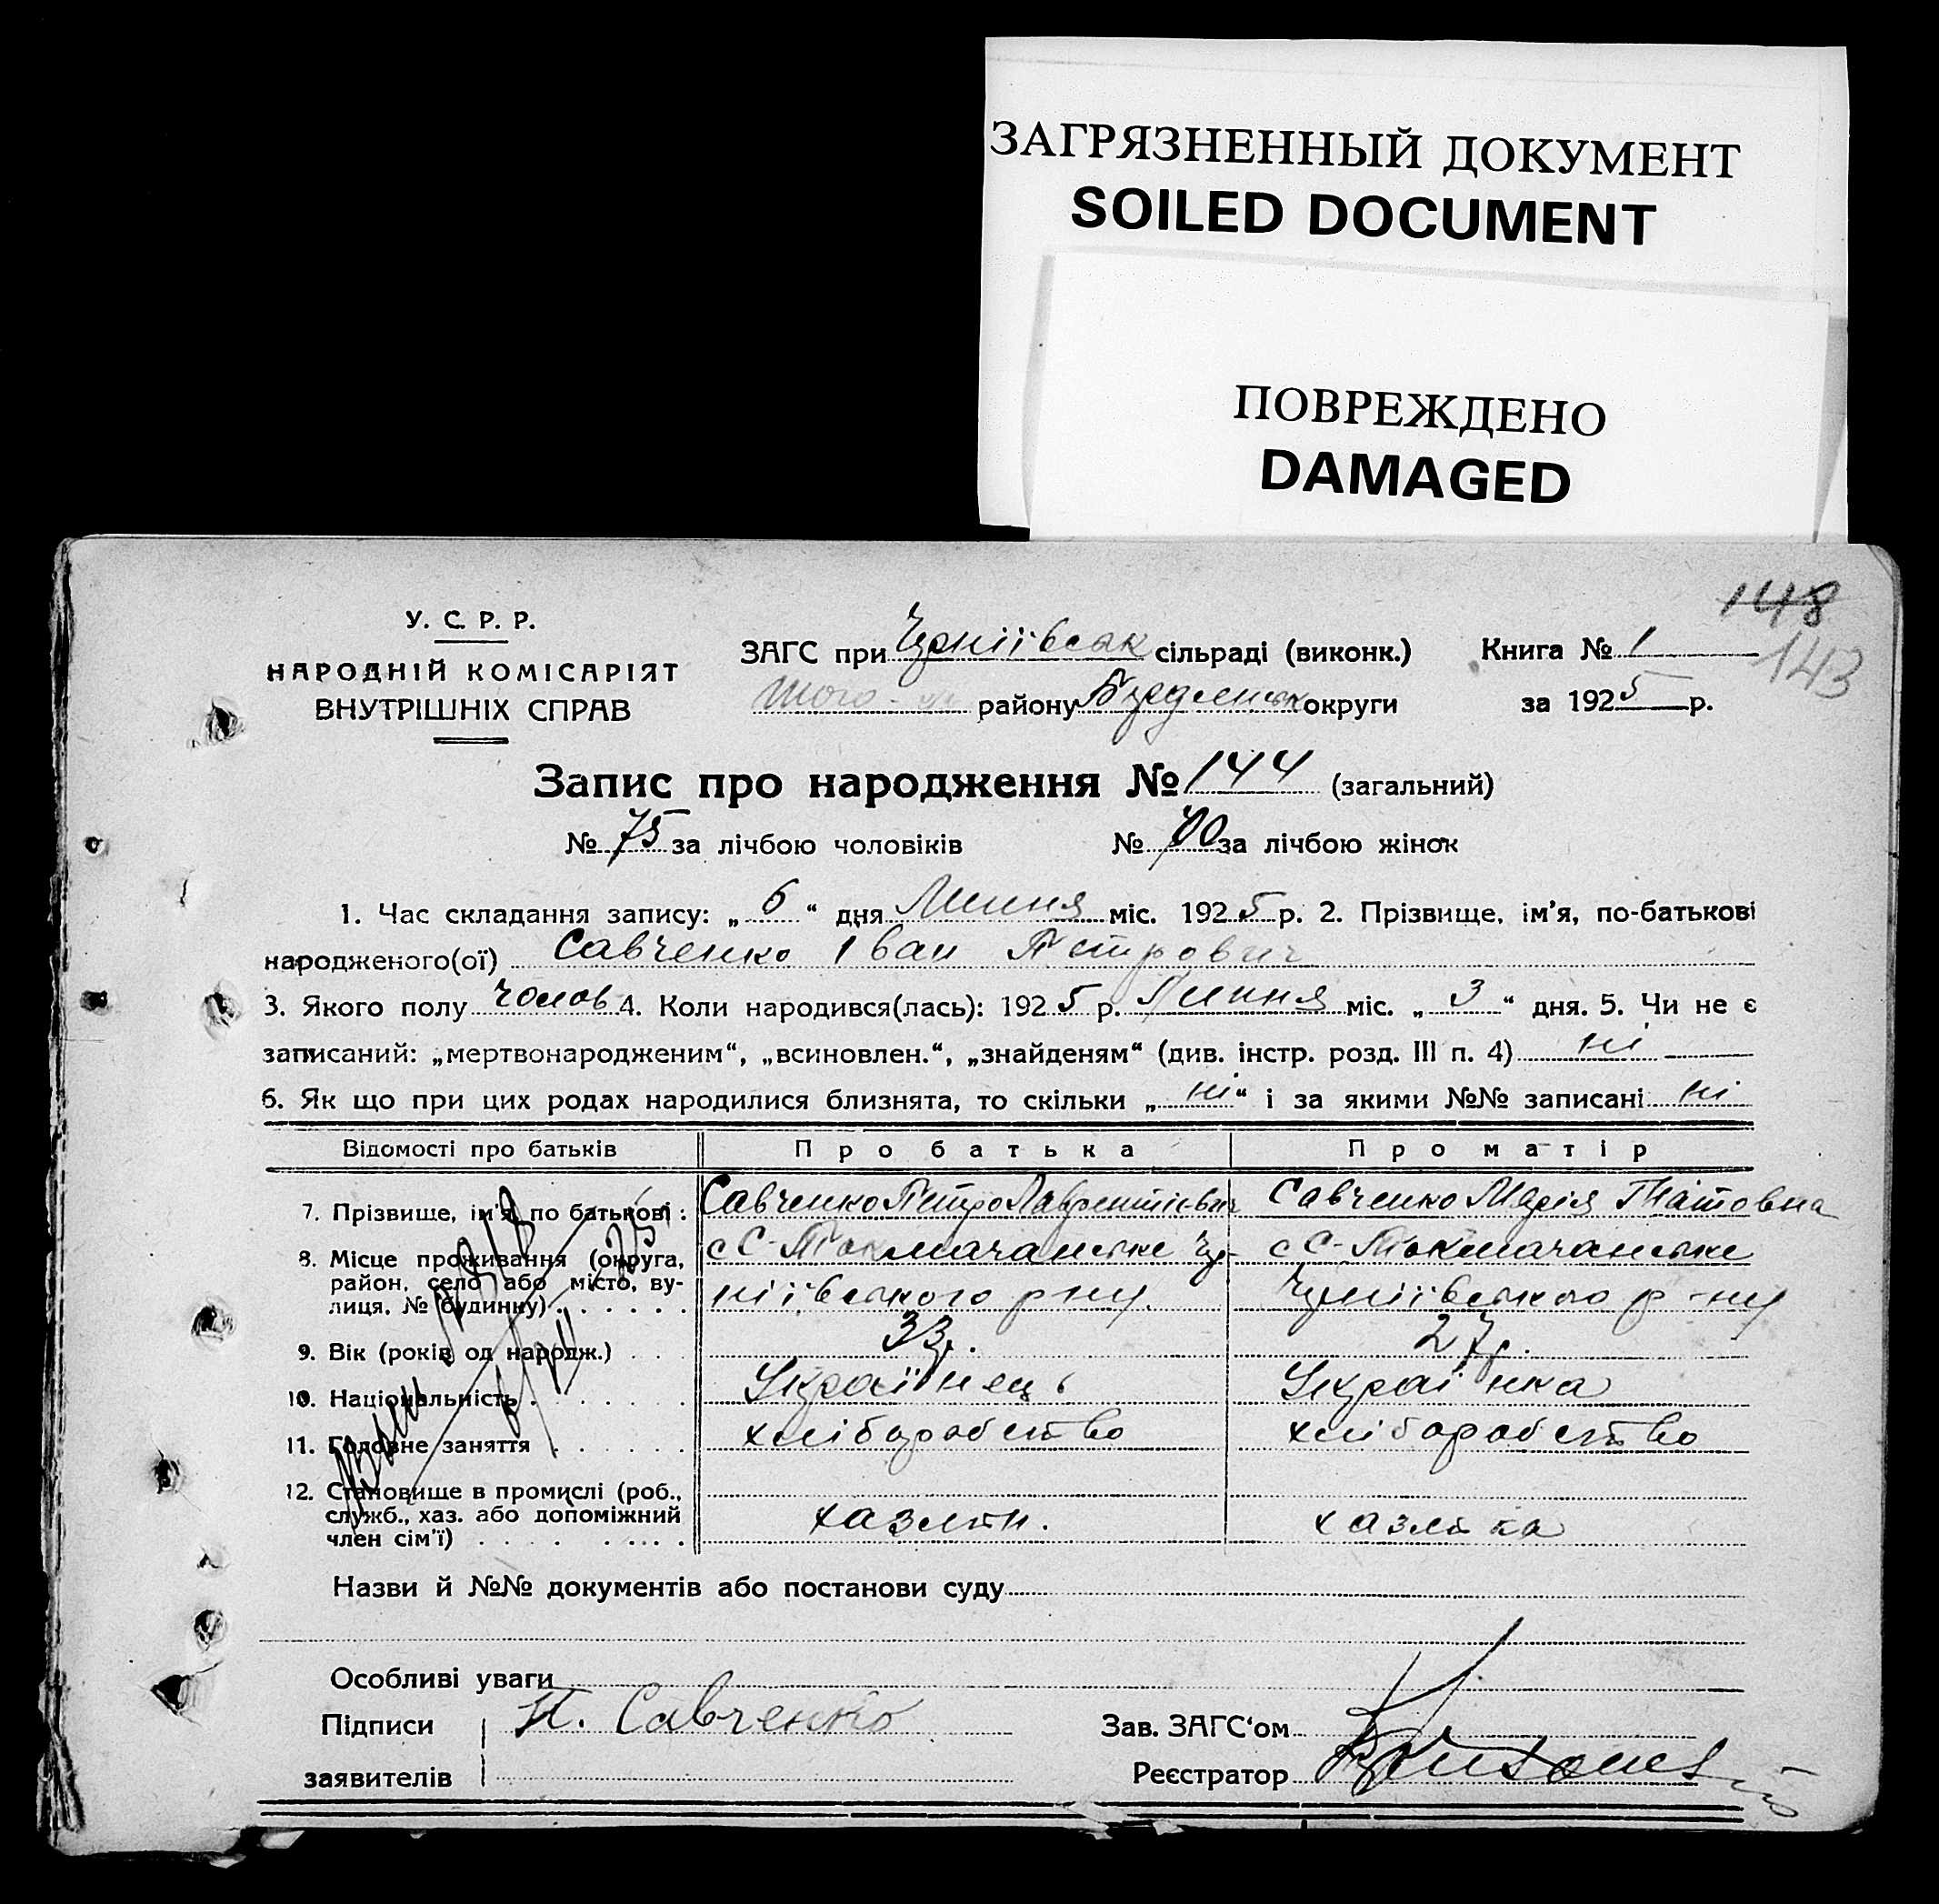 ЗАГРЯЗНЕННЫЙ ДОКУМЕНТ
SOILED DOCUMENT
ПОВРЕЖДЕНО
DAMAGED
148
143
У. С. Р. Р.
НАРОДНІЙ КОМІСАРІЯТ
ВНУТРІШНІХ СПРАВ
ЗАГС при сільраді (виконк.)
району округи
Книга № 1
за 1925 р.
Запис про народження № 144 (загальний)
№ 75 за лічбою чоловіків № 70 за лічбою жінок
1. Час складання запису: „ 6 “ дня Липня міс. 1925 р. 2. Прізвище, ім’я, по-батькові
народженого(ої) Савченко Іван Петрович
3. Якого полу чолов 4. Коли народився(лась): 1925 р. Липня міс. „ 3 “ дня. 5. Чи не є
записаний: „мертвонародженим“, „всиновлен.“, „знайденям“ (див. інстр. розд. III п. 4) ні
6. Як що при цих родах народилися близнята, то скільки „ ні “ і за якими №№ записані ні
Відомості про батьків Про батька Про матір
7. Прізвище, ім’я, по батькові: Савченко Петро Лаврентієвич Савченко Марія Титовна
8. Місце проживання (округа,
район, село або місто, ву-
лиця, № будинку)
с С-Токмачанське с С-Токмачанське
9. Вік (років од народж.) 33 р. 27 р.
10. Національність Українець Українка
11. Головне заняття хліборобство хліборобство
12. Становище в промислі (роб.,
служб., хаз. або допоміжний
член сім’ї)
хазяїн.
хазяйка
Назви й №№ документів або постанови суду
Особливі уваги
Підписи П. Савченко
заявителів
Зав. ЗАГС‘ом
Реєстратор